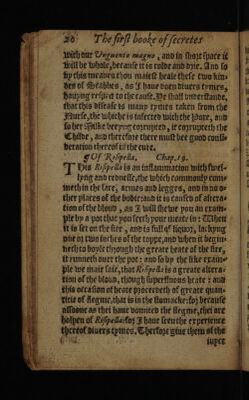 20 The first booke of secretes
with our Unguento magno, and in short space it
will be whole, because it is colde and drie. And so
by this meanes thou maiest heale these two kin-
des of Scabbes, as I have doen divers tymes,
having respect to the cause. Ye shall understande,
that this disease is many tymes taken from the
Nurse, the whiche is infected with the Poxe, and
so her Milke beeyng corrupted, it corrupteth the
Childe, and therefore there must bee good consi-
deration thereof in the cure.
¶ Of Rispella. Chap. 19.
THis Rispella is an inflammation with swel-
lyng and rednesse, the which commonly com-
meth in the face, armes and legges, and in no o-
ther places of the bodie: and it is caused of altera-
tion of the bloud, as I will shewe you an exam-
ple by a pot that you seeth your meate in: When
it is set on the fire, and is full of liquor, lackyng
one or two inches of the toppe, and when it begin-
neth to boyle through the greate heate of the fire,
it runneth over the pot: and so by the like exam-
ple we maie saie, that Rispella is a greate altera-
tion of the bloud, though superfluous heate: and
this occasion of heate proceedeth of greate quan-
titie of flegme, that is in the stomacke: for because
assoone as thei have vomited the flegme, thei are
holpen of Rispella: for I have seen the experience
thereof divers tymes. Therfore give them of the